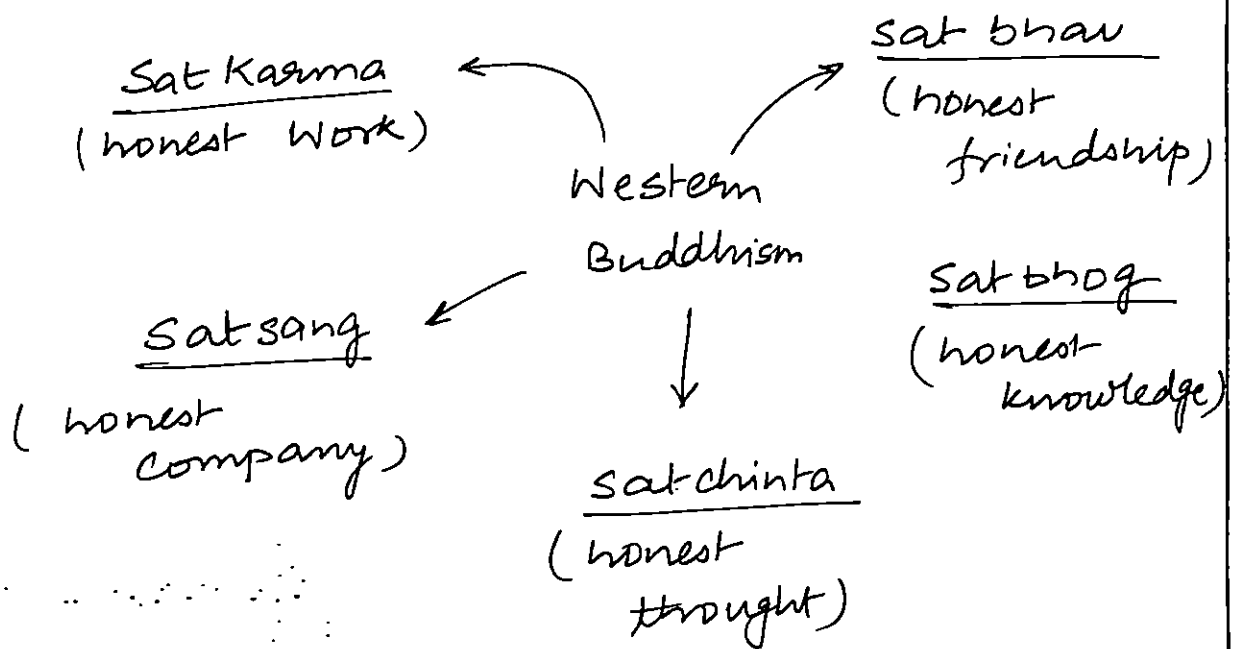 Sat Karma
(honest Work)
sat bhav
(honest
friendship)
Western
Buddhism
Sat sang
(honest
company)
sat bhog
(honest
knowledge)
sat chinta
(honest
thought)